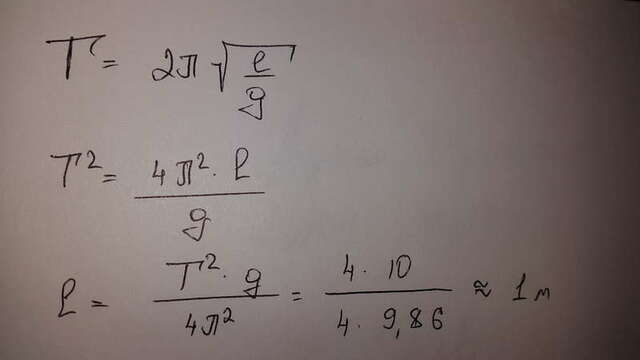 T = 2π√(l/g)
T² = (4π² · l)/g
l = (T² · g)/(4π²) = (4 · 10)/(4 · 9,86) ≈ 1 м